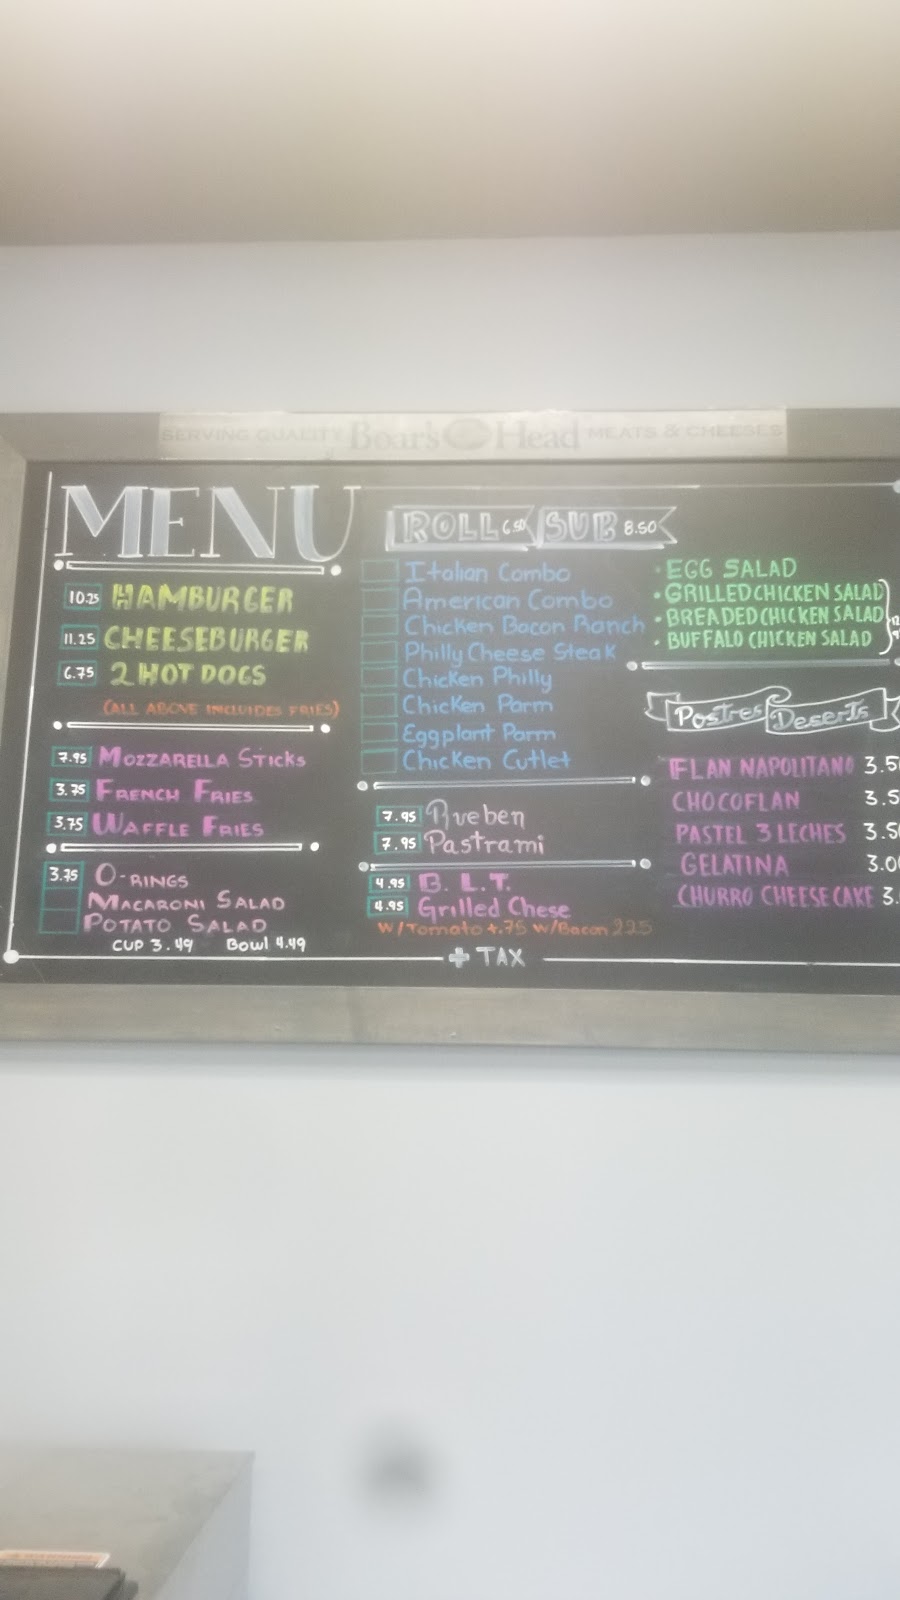 SERVING QUALITY Boar's Head MEATS & CHEESES
MENU
10.25 HAMBURGER
11.25 CHEESEBURGER
6.75 2 HOT DOGS
(ALL ABOVE INCLUDES FRIES)
7.95 MOZZARELLA STICKS
3.75 FRENCH FRIES
3.75 WAFFLE FRIES
3.75 O-RINGS
MACARONI SALAD
POTATO SALAD
CUP 3.49 Bowl 4.49
ROLL 6.50 SUB 8.50
Italian Combo
American Combo
Chicken Bacon Ranch
Philly Cheese Steak
Chicken Philly
Chicken Parm
Eggplant Parm
Chicken Cutlet
7.95 Rueben
7.95 Pastrami
4.95 B. L. T.
4.95 Grilled Chese
W/Tomato +.75 W/Bacon 2.25
+ TAX
• EGG SALAD
• GRILLED CHICKEN SALAD
• BREADED CHICKEN SALAD
• BUFFALO CHICKEN SALAD
Postres Deserts
FLAN NAPOLITANO 3.50
CHOCOFLAN 3.5
PASTEL 3 LECHES 3.50
GELATINA 3.00
CHURRO CHEESE CAKE 3.